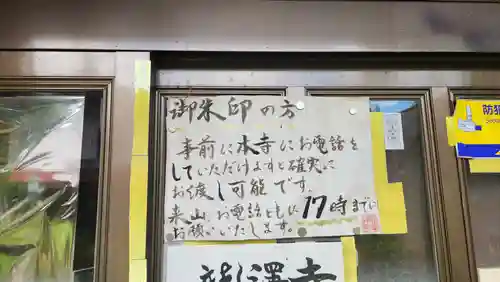 御朱印の方
事前に本寺にお電話を
していただけますと確実に
お渡し可能です。
来山、お電話ともに17時までに
お願いいたします。
防犯